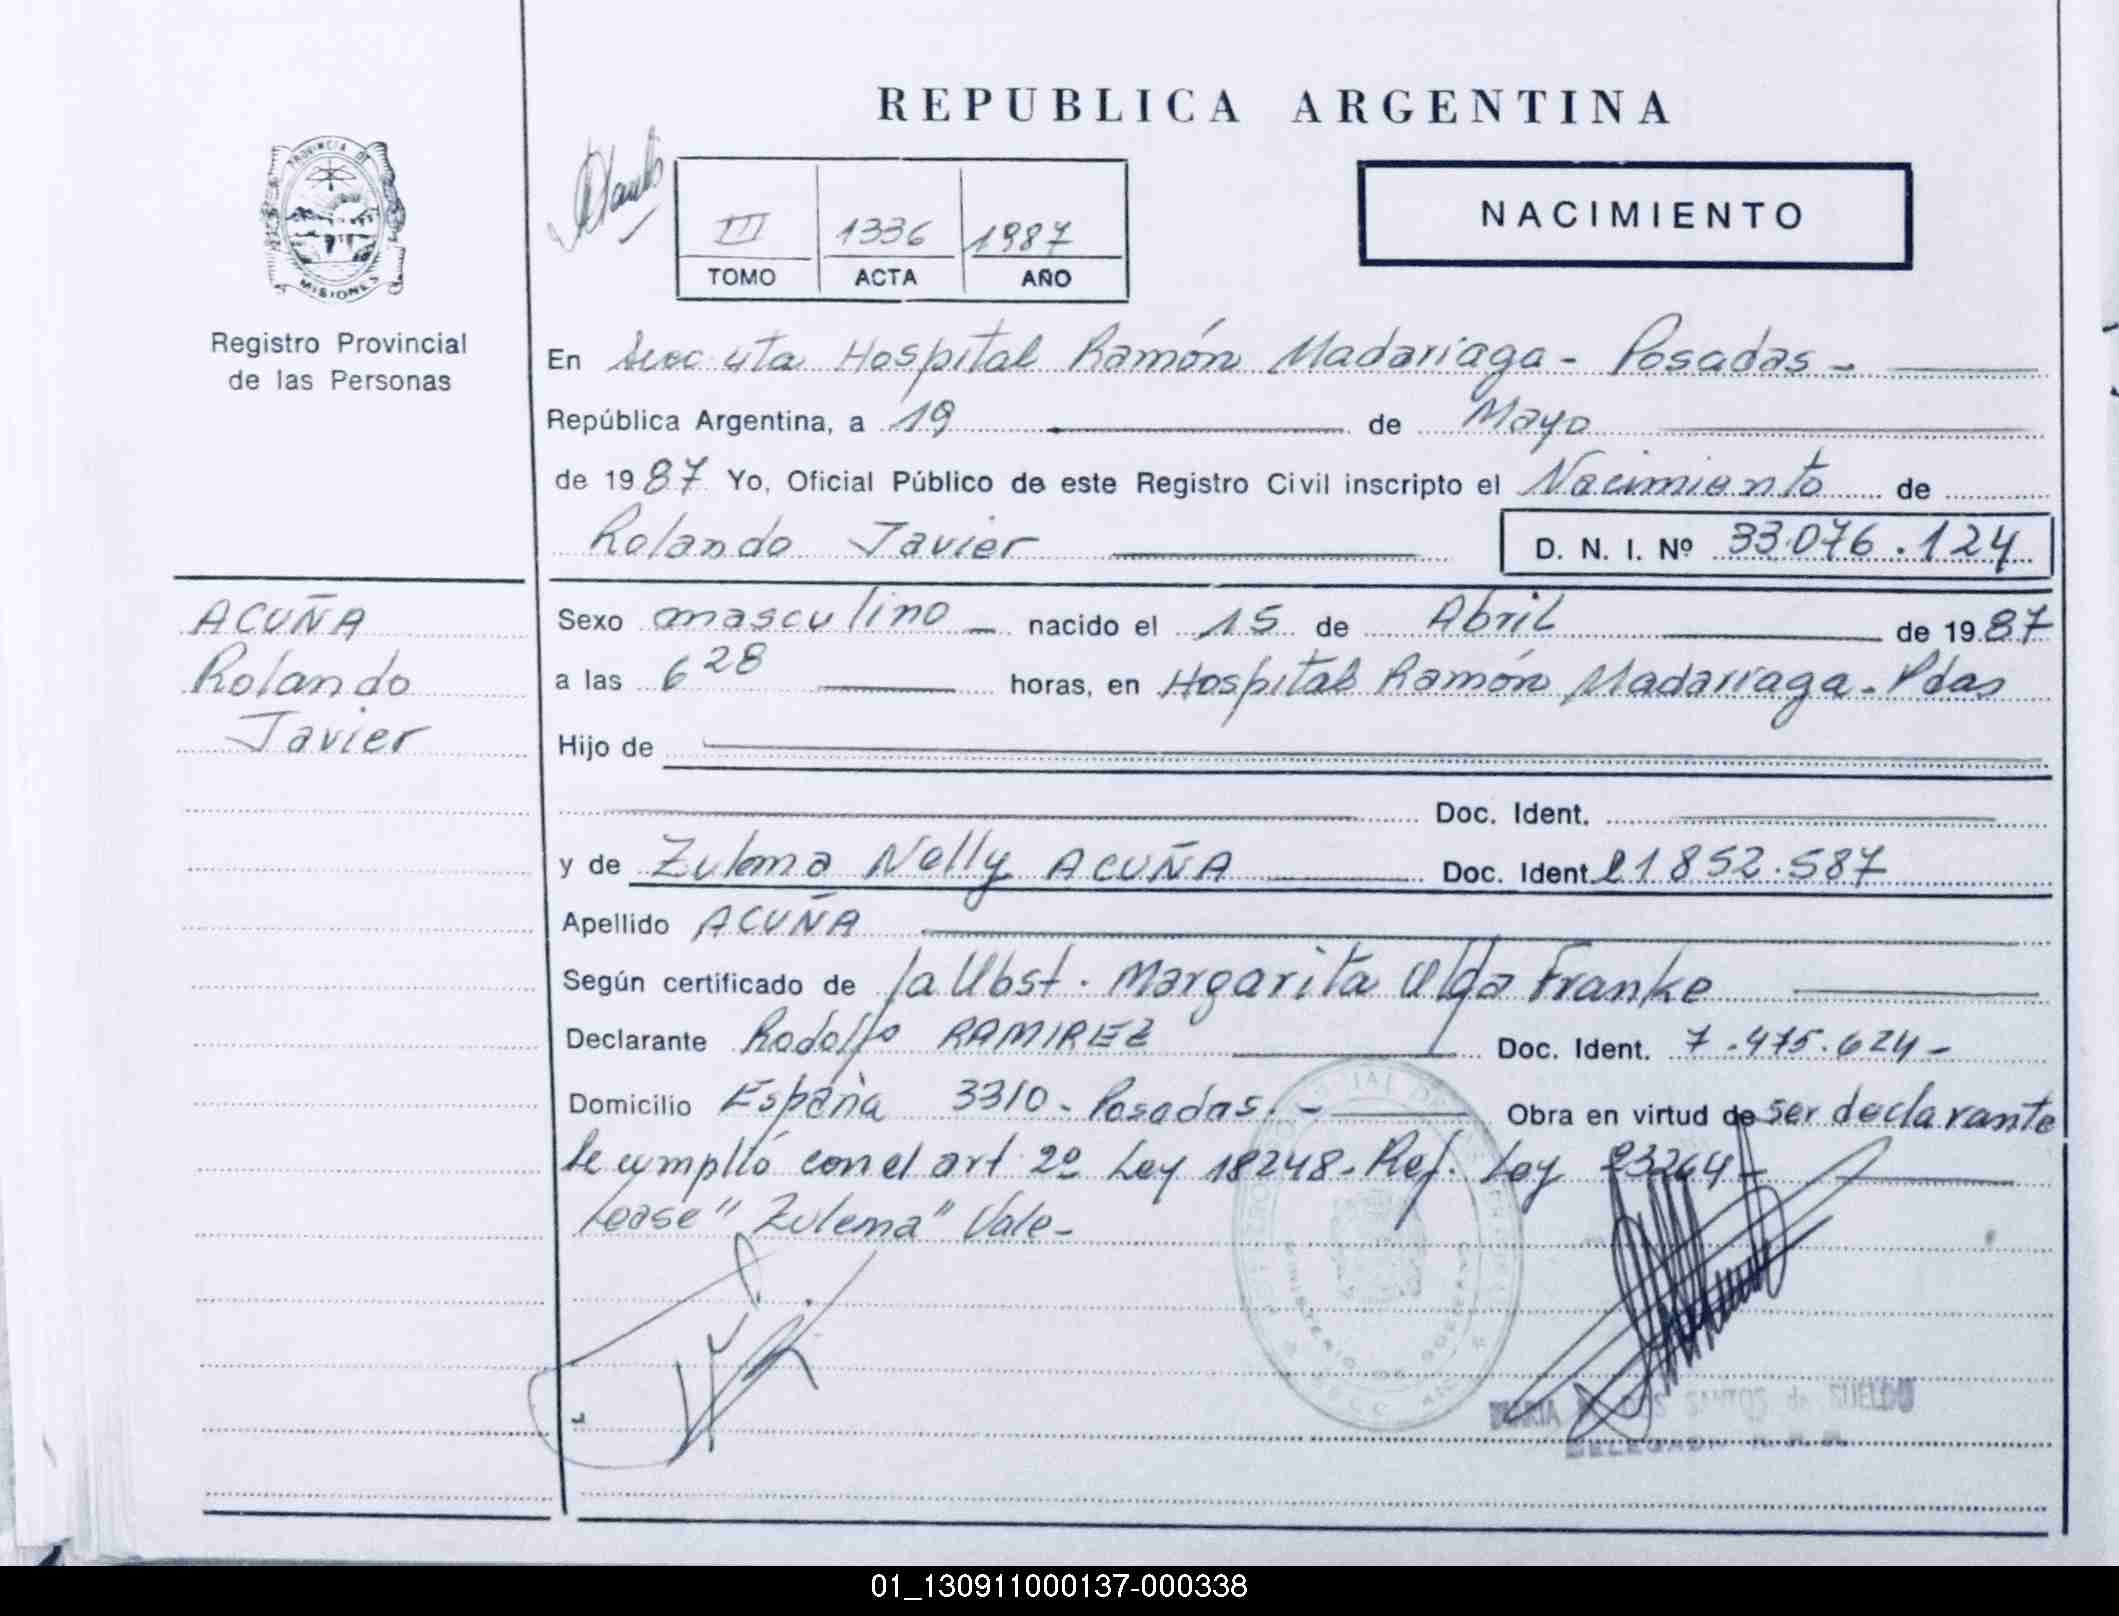 REPUBLICA ARGENTINA
PROVINCIA DE
MISIONES
Registro Provincial
de las Personas
III 1336 1987
TOMO ACTA AÑO
NACIMIENTO
En Secc 4ta Hospital Ramón Madariaga - Posadas -
República Argentina, a 19 de Mayo
de 1987 Yo, Oficial Público de este Registro Civil inscripto el Nacimiento de
Rolando Javier D. N. I. Nº 33.076.124
ACUÑA
Rolando
Javier
Sexo masculino - nacido el 15 de Abril de 1987
a las 6 28 horas, en Hospital Ramón Madariaga - Pdas
Hijo de
Doc. Ident.
y de Zulema Nelly ACUÑA Doc. Ident. 21852.587
Apellido ACUÑA
Según certificado de la Obst. Margarita Olga Franke
Declarante Rodolfo RAMIREZ Doc. Ident. 7.475.624-
Domicilio España 3310 - Posadas. - Obra en virtud de ser declarante
Se cumplió con el art 2º Ley 18248 - Ref. Ley 23264 -
Lease "Zulema" Vale -
MINISTERIO DE GOBIERNO
MARIA DOS SANTOS de SUELDO
DELEGADA R. P. P.
01_130911000137-000338